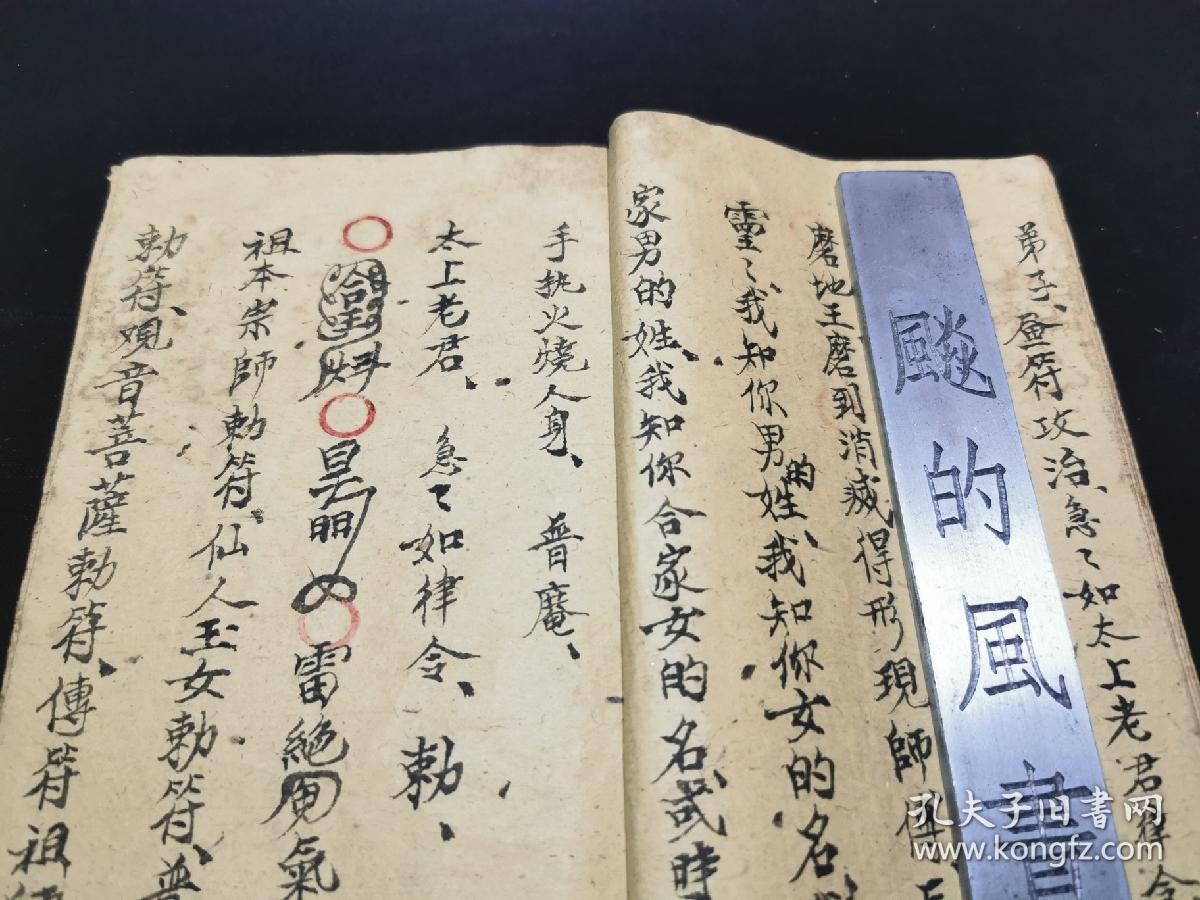 弟子、灸符攻治、急〻如太上老君律令
磨地王磨到消滅得形現師傅
靈〻我知你男的姓、我知你女的名
家男的姓、我知你合家女的名或時
手執火燒人身、普庵、
太上老君、急〻如律令、勅、
雷絕
氣
祖本宗師勅符、仙人玉女勅符、普
勅符、觀音菩薩勅符、傳符祖師
飈的風書
孔夫子旧书网
www.kongfz.com